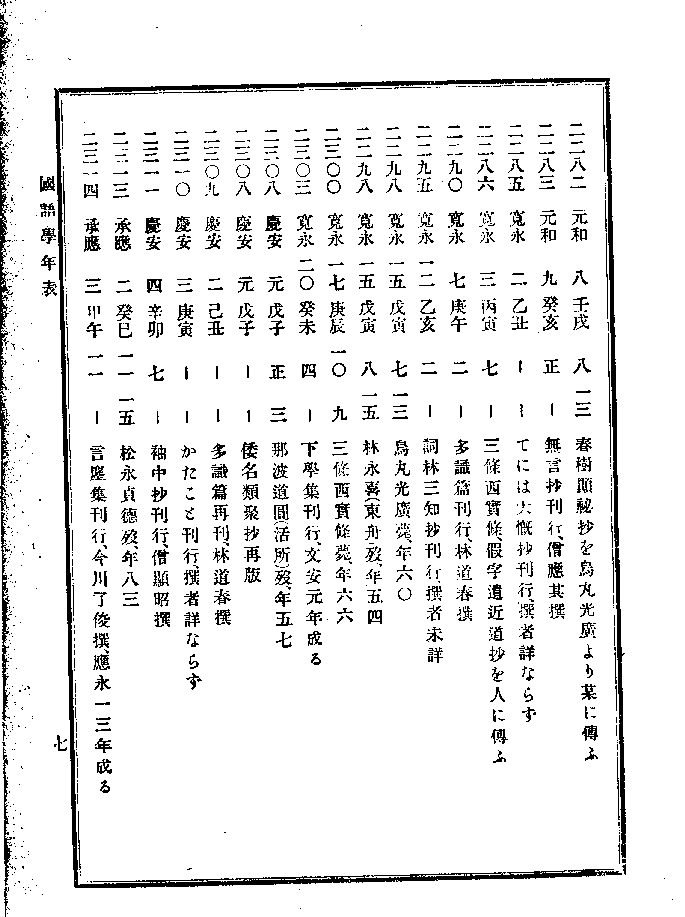 二二八二 元和 八 壬戌 八 一三 春樹顯秘抄を烏丸光廣より某に傳ふ
二二八三 元和 九 癸亥 正 ー 無言抄刊行、僧應其撰
二二八五 寬永 二 乙丑 ー ー てには大慨抄刊行、撰者詳ならず
二二八六 寬永 三 丙寅 七 ー 三條西實條、假字遣近道抄を人に傳ふ
二二九〇 寬永 七 庚午 二 ー 多識篇刊行、林道春撰
二二九五 寬永 一二 乙亥 二 ー 詞林三知抄刊行、撰者未詳
二二九八 寬永 一五 戊寅 七 一三 烏丸光廣薨、年六〇
二二九八 寬永 一五 戊寅 八 一五 林永喜(東舟)歿、年五四
二三〇〇 寬永 一七 庚辰 一〇 九 三條西實條薨、年六六
二三〇三 寬永 二〇 癸未 四 ー 下學集刊行、文安元年成る
二三〇八 慶安 元 戊子 正 三 那波道圓(活所)歿、年五七
二三〇八 慶安 元 戊子 ー ー 倭名類聚抄再版
二三〇九 慶安 二 己丑 ー ー 多識篇再刊、林道春撰
二三一〇 慶安 三 庚寅 ー ー かたこと刊行、撰者詳ならず
二三一一 慶安 四 辛卯 七 ー 袖中抄刊行、僧顯昭撰
二三一三 承應 二 癸巳 一一 一五 松永貞德歿、年八三
二三一四 承應 三 甲午 一一 ー 言塵集刊行、今川了俊撰、應永一三年成る
國語學年表
七